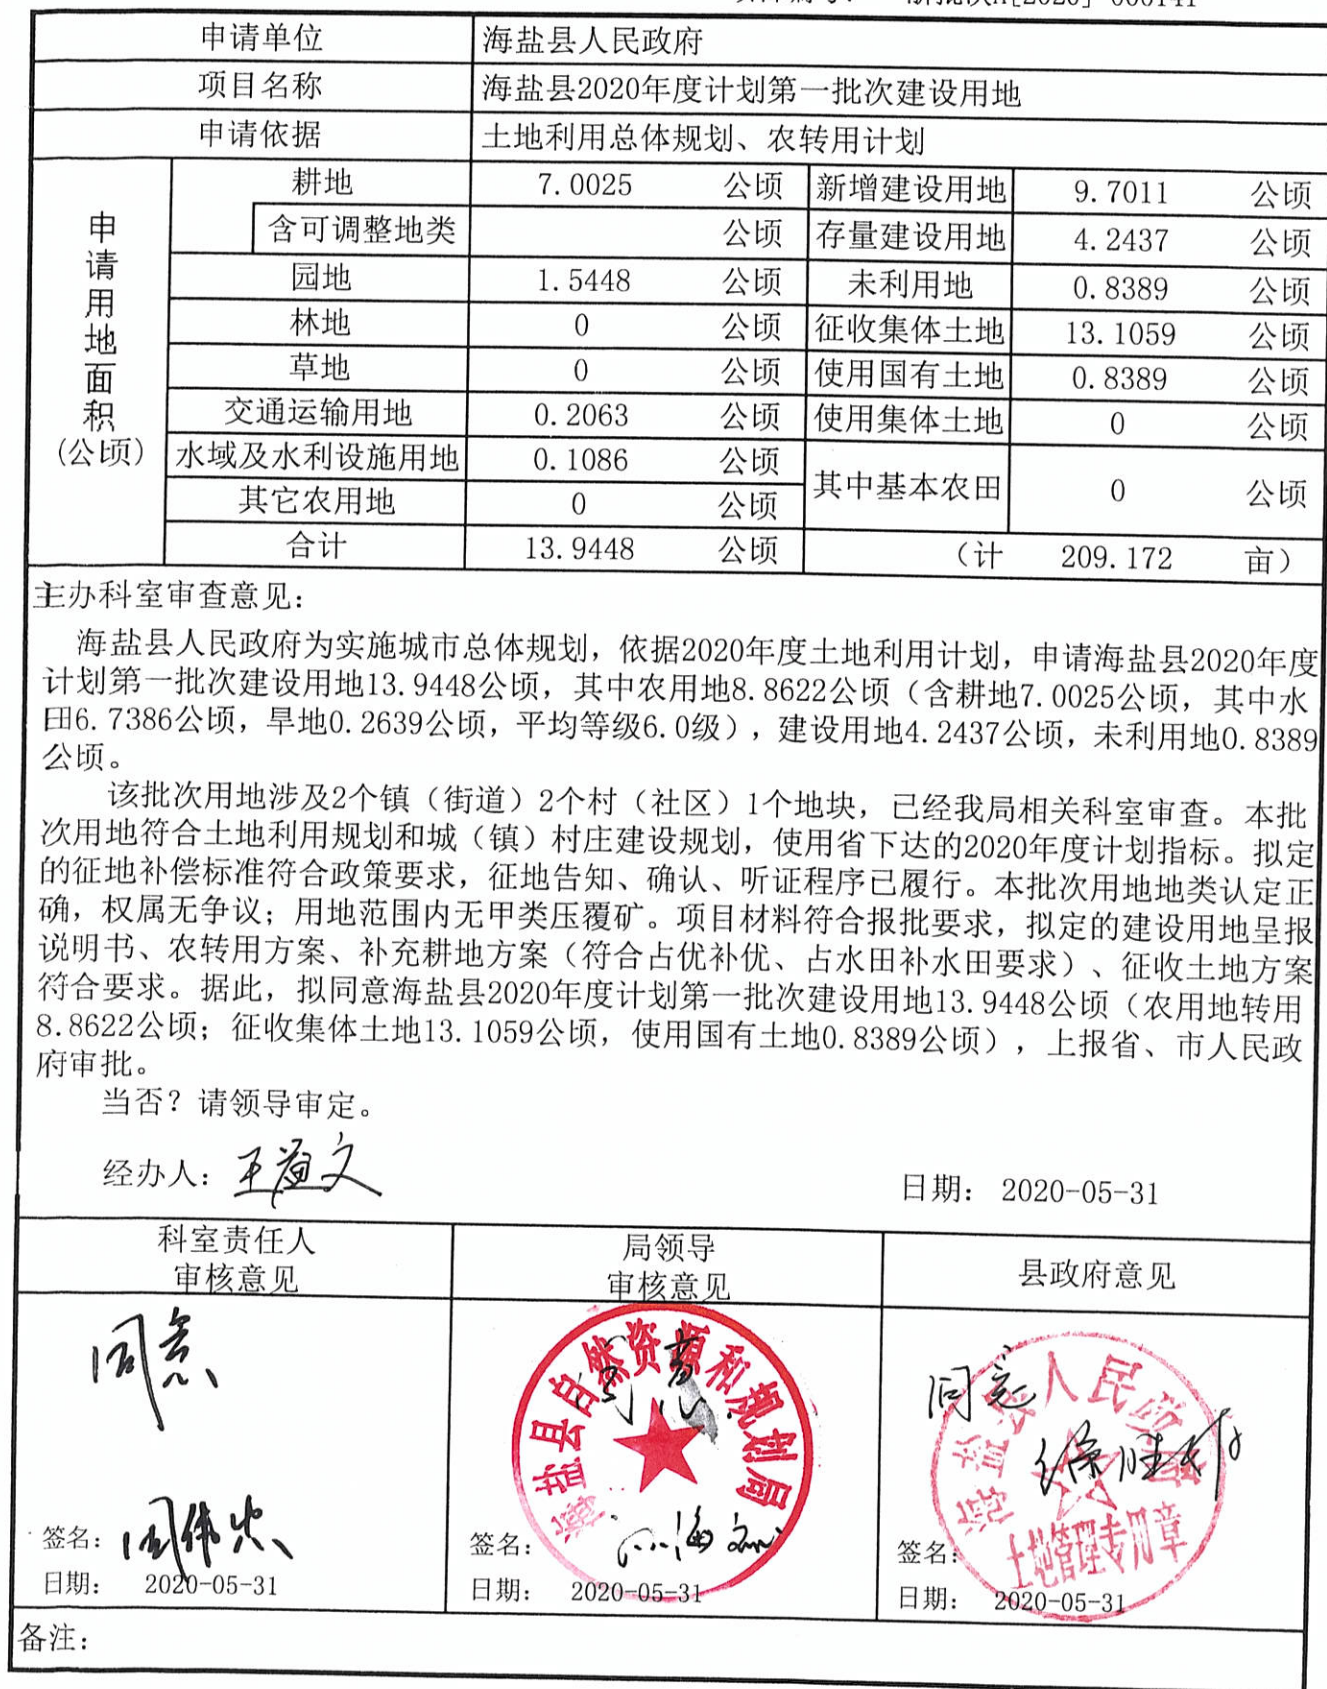 申请单位 海盐县人民政府
项目名称 海盐县2020年度计划第一批次建设用地
申请依据 土地利用总体规划、农转用计划
申请用地面积(公顷)
耕地 7.0025 公顷 新增建设用地 9.7011 公顷
含可调整地类 公顷 存量建设用地 4.2437 公顷
园地 1.5448 公顷 未利用地 0.8389 公顷
林地 0 公顷 征收集体土地 13.1059 公顷
草地 0 公顷 使用国有土地 0.8389 公顷
交通运输用地 0.2063 公顷 使用集体土地 0 公顷
水域及水利设施用地 0.1086 公顷 其中基本农田 0 公顷
其它农用地 0 公顷
合计 13.9448 公顷 （计 209.172 亩）
主办科室审查意见：
海盐县人民政府为实施城市总体规划，依据2020年度土地利用计划，申请海盐县2020年度
计划第一批次建设用地13.9448公顷，其中农用地8.8622公顷（含耕地7.0025公顷，其中水
田6.7386公顷，旱地0.2639公顷，平均等级6.0级），建设用地4.2437公顷，未利用地0.8389
公顷。
该批次用地涉及2个镇（街道）2个村（社区）1个地块，已经我局相关科室审查。本批
次用地符合土地利用规划和城（镇）村庄建设规划，使用省下达的2020年度计划指标。拟定
的征地补偿标准符合政策要求，征地告知、确认、听证程序已履行。本批次用地地类认定正
确，权属无争议；用地范围内无甲类压覆矿。项目材料符合报批要求，拟定的建设用地呈报
说明书、农转用方案、补充耕地方案（符合占优补优、占水田补水田要求）、征收土地方案
符合要求。据此，拟同意海盐县2020年度计划第一批次建设用地13.9448公顷（农用地转用
8.8622公顷；征收集体土地13.1059公顷，使用国有土地0.8389公顷），上报省、市人民政
府审批。
当否？请领导审定。
经办人：王益文 日期： 2020-05-31
科室责任人
审核意见
局领导
审核意见
县政府意见
同意
同意
同意
海盐县自然资源和规划局
海盐县人民政府
土地管理专用章
签名：周伟忠
日期： 2020-05-31
签名：
日期： 2020-05-31
签名：
日期： 2020-05-31
备注：